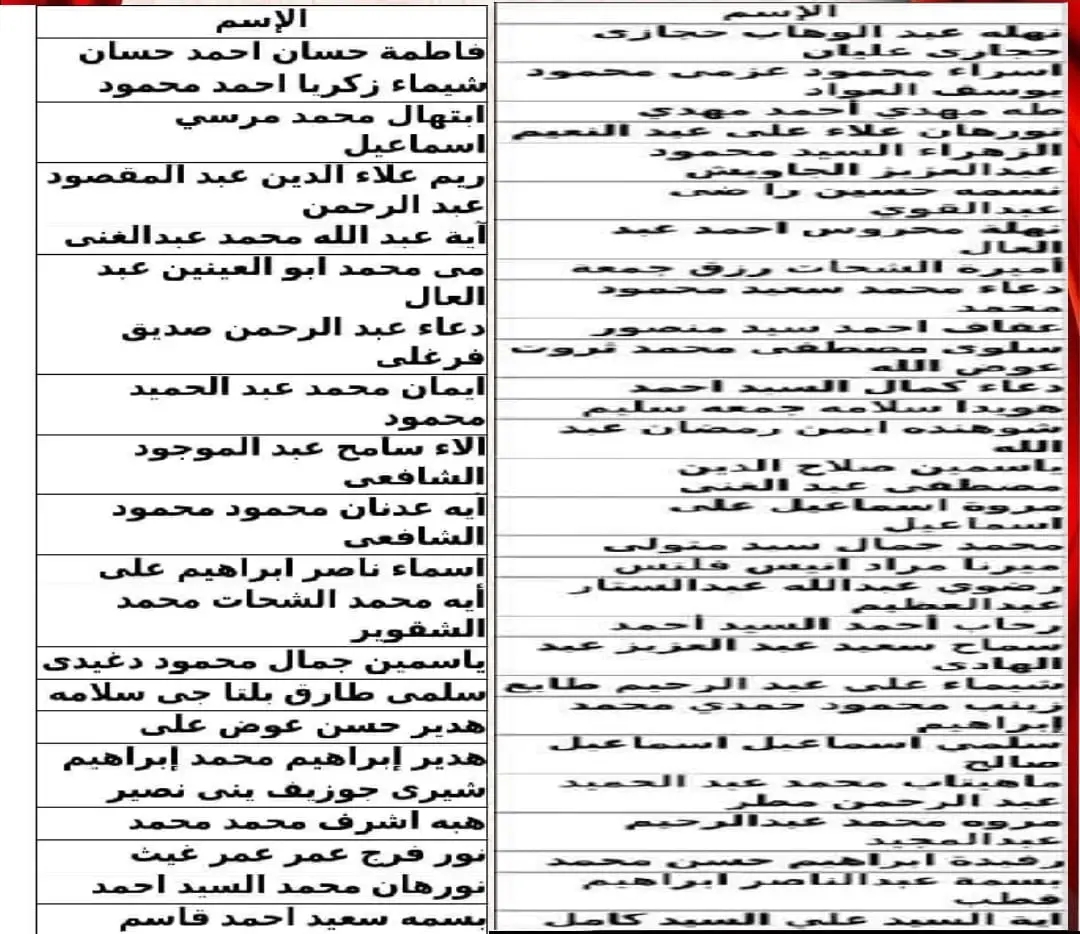 الإسم
نهله عبد الوهاب حجازى
حجازى عليان
اسراء محمود عزمى محمود
يوسف العواد
طه مهدي أحمد مهدي
نورهان علاء على عبد النعيم
الزهراء السيد محمود
عبدالعزيز الجاويش
نسمه حسين را ضى
عبدالقوي
نهلة محروس احمد عبد
العال
أميرة الشحات رزق جمعة
دعاء محمد سعيد محمود
محمد
عفاف احمد سيد منصور
سلوى مصطفى محمد ثروت
عوض الله
دعاء كمال السيد احمد
هويدا سلامه جمعه سليم
شوهنده ايمن رمضان عبد
الله
ياسمين صلاح الدين
مصطفى عبد الغنى
مروة اسماعيل على
اسماعيل
محمد جمال سيد متولى
ميرنا مراد انيس فلتس
رضوي عبدالله عبدالستار
عبدالعظيم
رحاب أحمد السيد أحمد
سماح سعيد عبد العزيز عبد
الهادى
شيماء على عبد الرحيم طايع
زينب محمود حمدي محمد
إبراهيم
سلمي اسماعيل اسماعيل
صالح
ماهيتاب محمد عبد الحميد
عبد الرحمن مطر
مروه محمد عبدالرحيم
عبدالمجيد
رفيدة ابراهيم حسن محمد
بسمة عبدالناصر ابراهيم
قطب
اية السيد علي السيد كامل
الإسم
فاطمة حسان احمد حسان
شيماء زكريا احمد محمود
ابتهال محمد مرسي
اسماعيل
ريم علاء الدين عبد المقصود
عبد الرحمن
آية عبد الله محمد عبدالغنى
مى محمد ابو العينين عبد
العال
دعاء عبد الرحمن صديق
فرغلى
ايمان محمد عبد الحميد
محمود
الاء سامح عبد الموجود
الشافعى
آيه عدنان محمود محمود
الشافعى
اسماء ناصر ابراهيم على
أيه محمد الشحات محمد
الشقوير
ياسمين جمال محمود دغيدى
سلمى طارق بلتا جى سلامه
هدير حسن عوض على
هدير إبراهيم محمد إبراهيم
شيرى جوزيف ينى نصير
هبه اشرف محمد محمد
نور فرج عمر عمر غيث
نورهان محمد السيد احمد
بسمه سعيد احمد قاسم